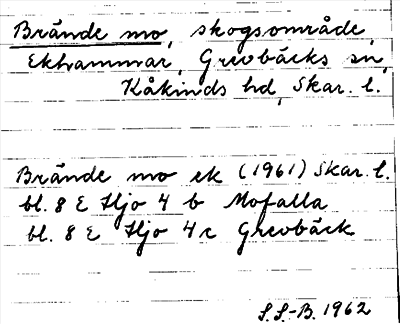 Brände mo, skogsområde,
Ekhammar, Grevbäcks sn,
Kåkinds hd, Skar. l.
Brände mo ek (1961) Skar. l.
bl. 8 E Hjo 4 b Mofalla
bl. 8 E Hjo 4 c Grevbäck
S. S.-B. 1962